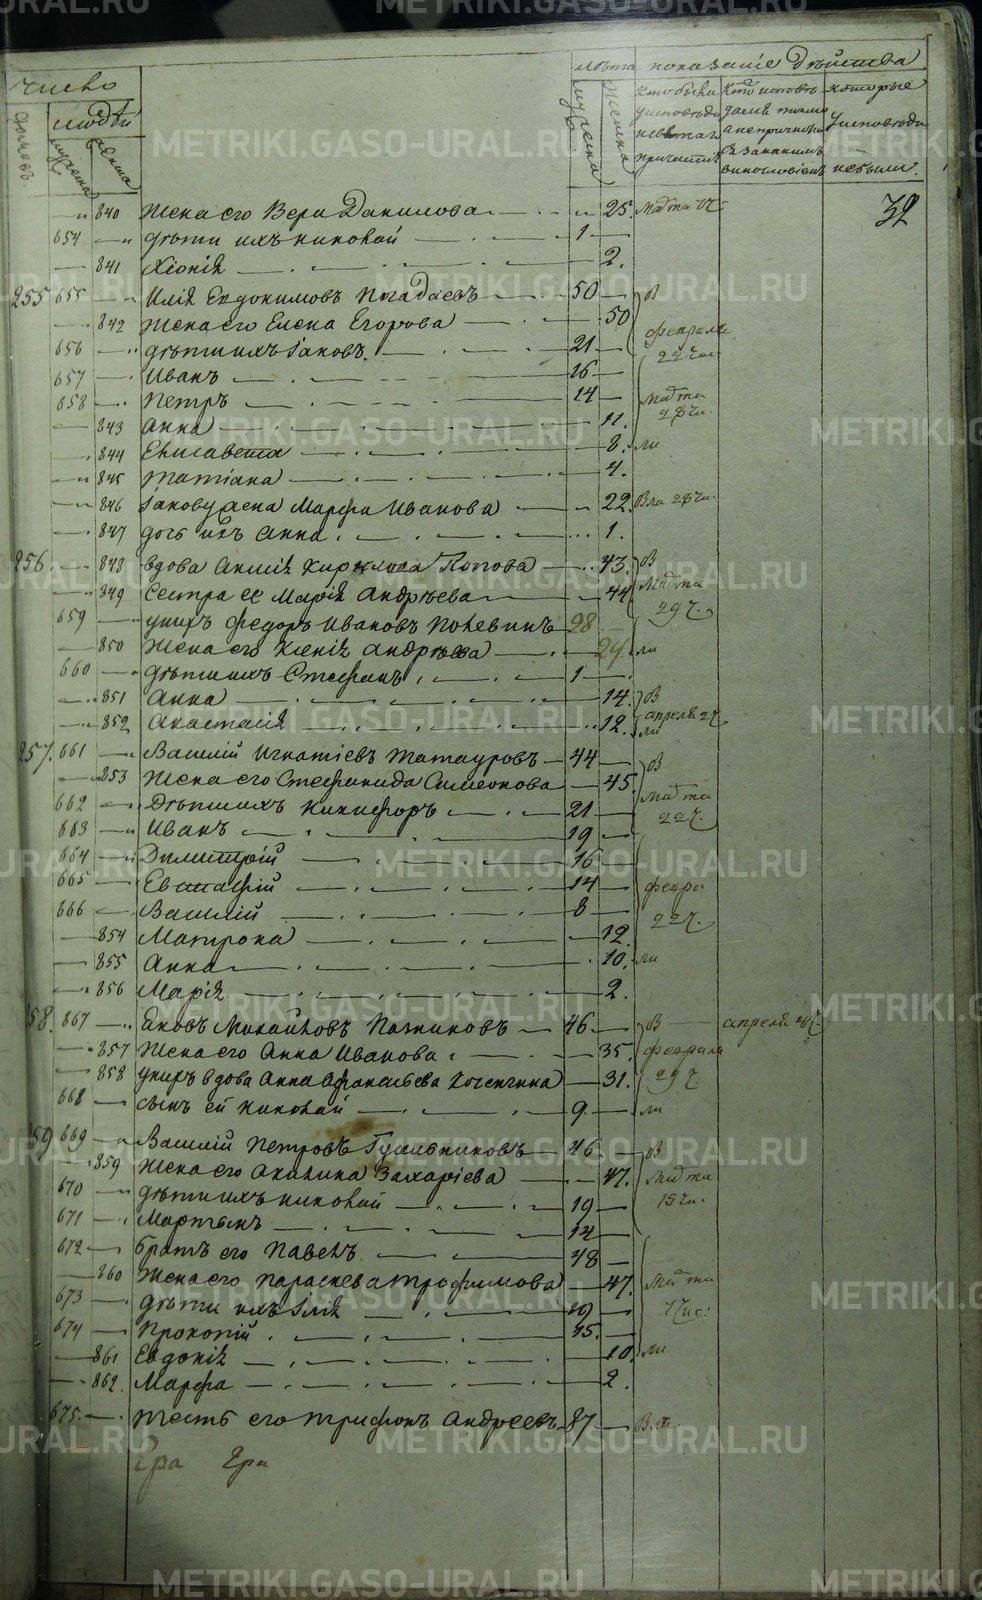 число
людѣй
домовъ.
мужеска
женска
лѣта
мужеска
женска
показаніе дѣйства
Кто были у исповѣди и св: таг причастія
Кто исповѣдалсѧ токмо а не причастил и за какимъ винословіемъ
которые у исповѣди не были.
32
840 жена его Вера Данилова 25. Марта
654 дѣти ихъ Николай 1
841 Хіонія 2.
255 655 Илія Евдокимовъ Погадаевъ 50 В
842 жена его Елена Егорова 50 февраля
656 дѣти ихъ Іаковъ. 21 22 чис
657 Иванъ 16
658 Петръ 14 Марта
843 Анна 11. 28 чи.
844 Елисавета 8. ли
845 татіана 4.
846 Іакову жена Марфа Иванова 22. В ли 28 чи.
847 дочь ихъ Анна. 1.
256. 848 вдова Анисія Кирилова Попова 43. В
849 Сестра ее Марія Андрѣева 44 Марта
659 у нихъ Федоръ Ивановъ 28 29 ч.
850 жена его Ксенія Андрѣева 24. ли
660 дѣти ихъ Стефанъ. 1
851 Анна 14. В
852 Анастасія 12. апреля 2 ч ли
257. 661 Василій Игнатіевъ Татауровъ 44 В
853 жена его Стефанида Симеонова 45.
662 Дѣти ихъ Никифоръ 21 Марта
663 Иванъ 19 22 ч.
664 Димитрій 16
665 Евстафій 14 февра
666 Василій 8 22 ч.
854 Матрона 12.
855 Анна 10. ли
856 Марія 2.
258. 667 Яковъ Михайловъ 46 В апреля 4 ч.
857 жена его Анна Иванова 35. февраля
858 у нихъ вдова Анна Афанасьева 31. 29 ч
668 сынъ ей Николай 9. ли
259 669 Василій Петровъ Гусельниковъ 46. В
859 жена его Акилина Захаріева 47. Марта
670 дѣти ихъ Николай 19 15 чи.
671 Мартынъ 14
672 братъ его Павелъ 48
860 жена его Параскева Трофимова 47. Марта
673 дѣти ихъ Ілія 19 7 чис:
674 Прокопій 15.
861 Евдокія 10. ли
862. Марфа 2.
675. тесть его Трифонъ Андреевъ 87 В. ли
METRIKI.GASO-URAL.RU